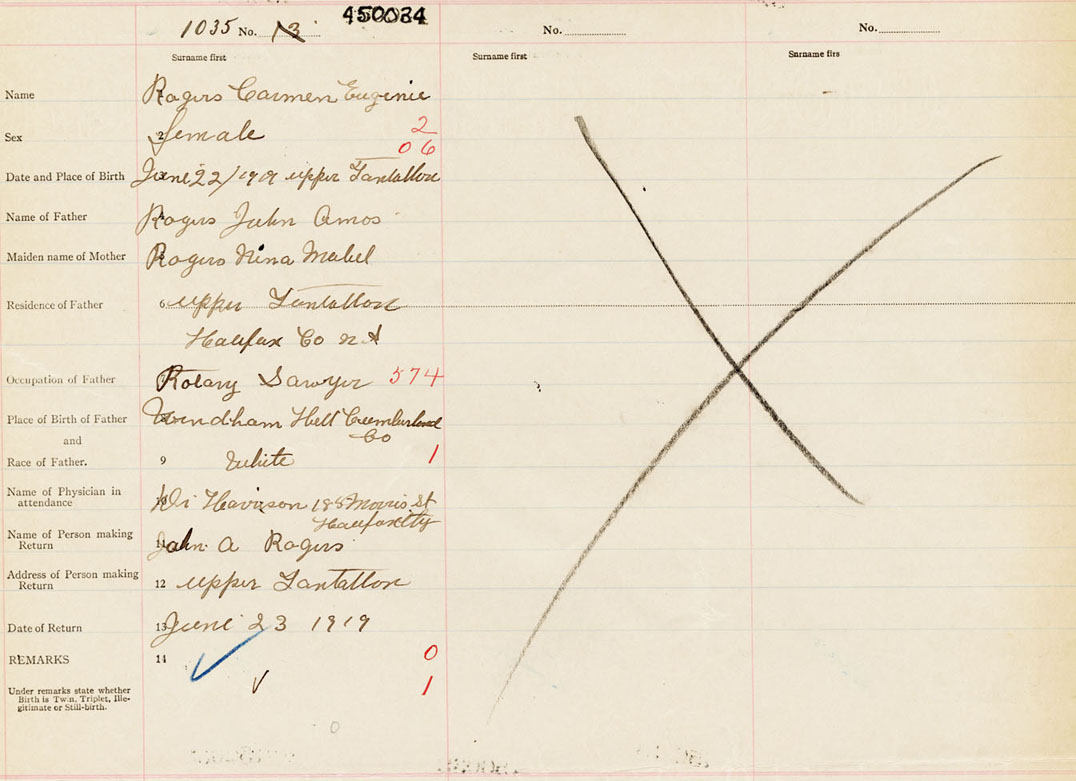 450034
1035 No. 13
No.
No.
Surname first
Surname first
Surname firs
Name Rogers Carmen Eugenie
Sex 2 female 2
06
Date and Place of Birth June 22/1919 upper Tantallon
Name of Father Rogers John Amos
Maiden name of Mother Rogers Nina Mabel
Residence of Father 6 upper Tantallon
Halifax Co N S
Occupation of Father Rotary Sawyer 574
Place of Birth of Father Windham Hill Cumberland
and Co
Race of Father. 9 White 1
Name of Physician in
attendance 10 Dr 188 Morris St
Halifax City
Name of Person making
Return 11 John A Rogers
Address of Person making
Return 12 upper Tantallon
Date of Return 13 June 23 1919
REMARKS 14 0
Under remarks state whether
Birth is Twin, Triplet, Ille-
gitimate or Still-birth.
1
0